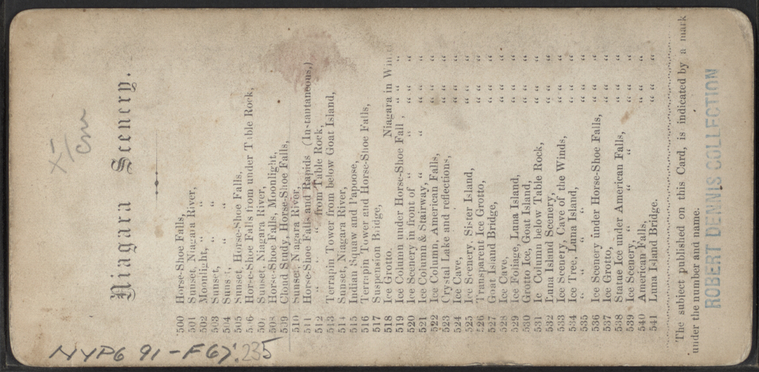 Niagara Scenery.
500 Horse-Shoe Falls,
501 Sunset, Niagara River,
502 Moonlight, " "
503 Sunset, " "
504 Sunset, " "
505 Sunset, Horse-Shoe Falls,
506 Horse-Shoe Falls from under Table Rock,
507 Sunset, Niagara River,
508 Horse-Shoe Falls, Moonlight,
509 Cloud Study, Horse-Shoe Falls,
510 Sunset, Niagara River,
511 Horse-Shoe Falls and Rapids (Instantaneous,)
512 " " from Table Rock,
513 Terrapin Tower from below Goat Island,
514 Sunset, Niagara River,
515 Indian Squaw and Papoose,
516 Terrapin Tower and Horse-Shoe Falls,
517 Suspension Bridge,
518 Ice Grotto, Niagara in Winter
519 Ice Column under Horse-Shoe Fall, " "
520 Ice Scenery in front of " " "
521 Ice Column & Stairway, " " "
522 Ice Column, American Falls, " "
523 Crystal Lake and reflections, " "
524 Ice Cave, " "
525 Ice Scenery, Sister Island, " "
526 Transparent Ice Grotto, " "
527 Goat Island Bridge, " "
528 Ice Cave, " "
529 Ice Foliage, Luna Island, " "
530 Grotto Ice, Goat Island, " "
531 Ice Column below Table Rock, " "
532 Luna Island Scenery, " "
533 Ice Scenery, Cave of the Winds, " "
534 Ice Tree, Luna Island, " "
535 " " " " " "
536 Ice Scenery under Horse-Shoe Falls, " "
537 Ice Grotto, " "
538 Statue Ice under American Falls, " "
539 Ice Scenery, " " " "
540 American Falls, " "
541 Luna Island Bridge. " "
The subject published on this Card, is indicated by a mark
under the number and name.
ROBERT DENNIS COLLECTION
NYPG 91-F67: 235